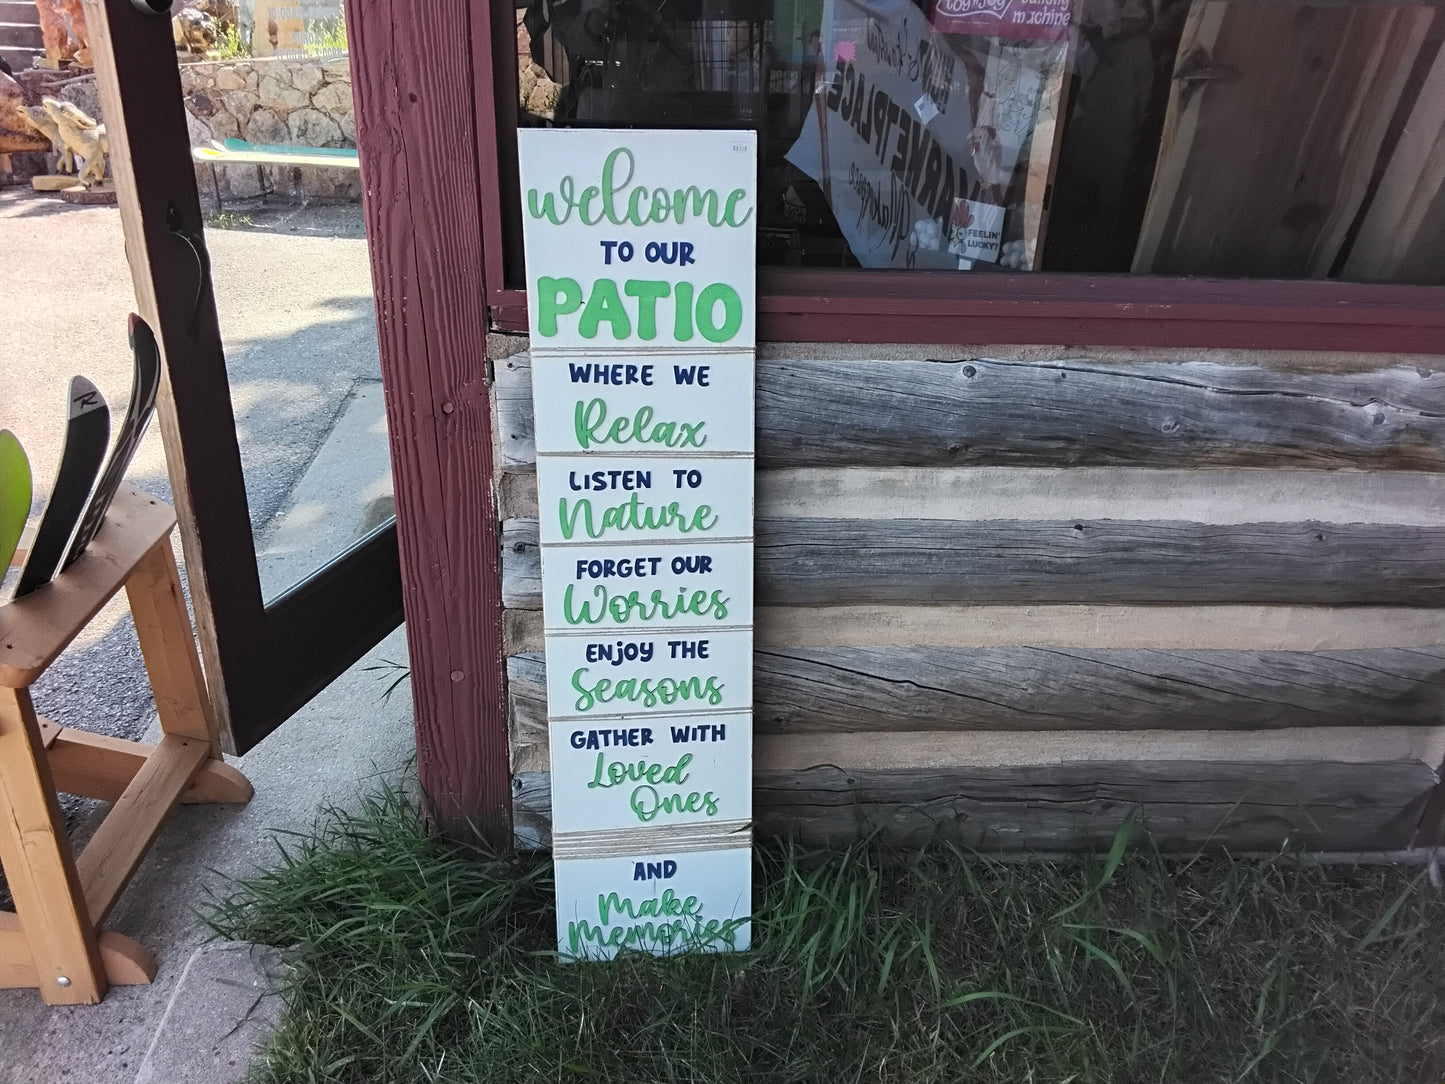 welcome
TO OUR
PATIO
WHERE WE
Relax
LISTEN TO
Nature
FORGET OUR
Worries
ENJOY THE
Seasons
GATHER WITH
Loved
Ones
AND
Make
Memories
MARKETPLACE
FEELIN'
LUCKY?
machine
R